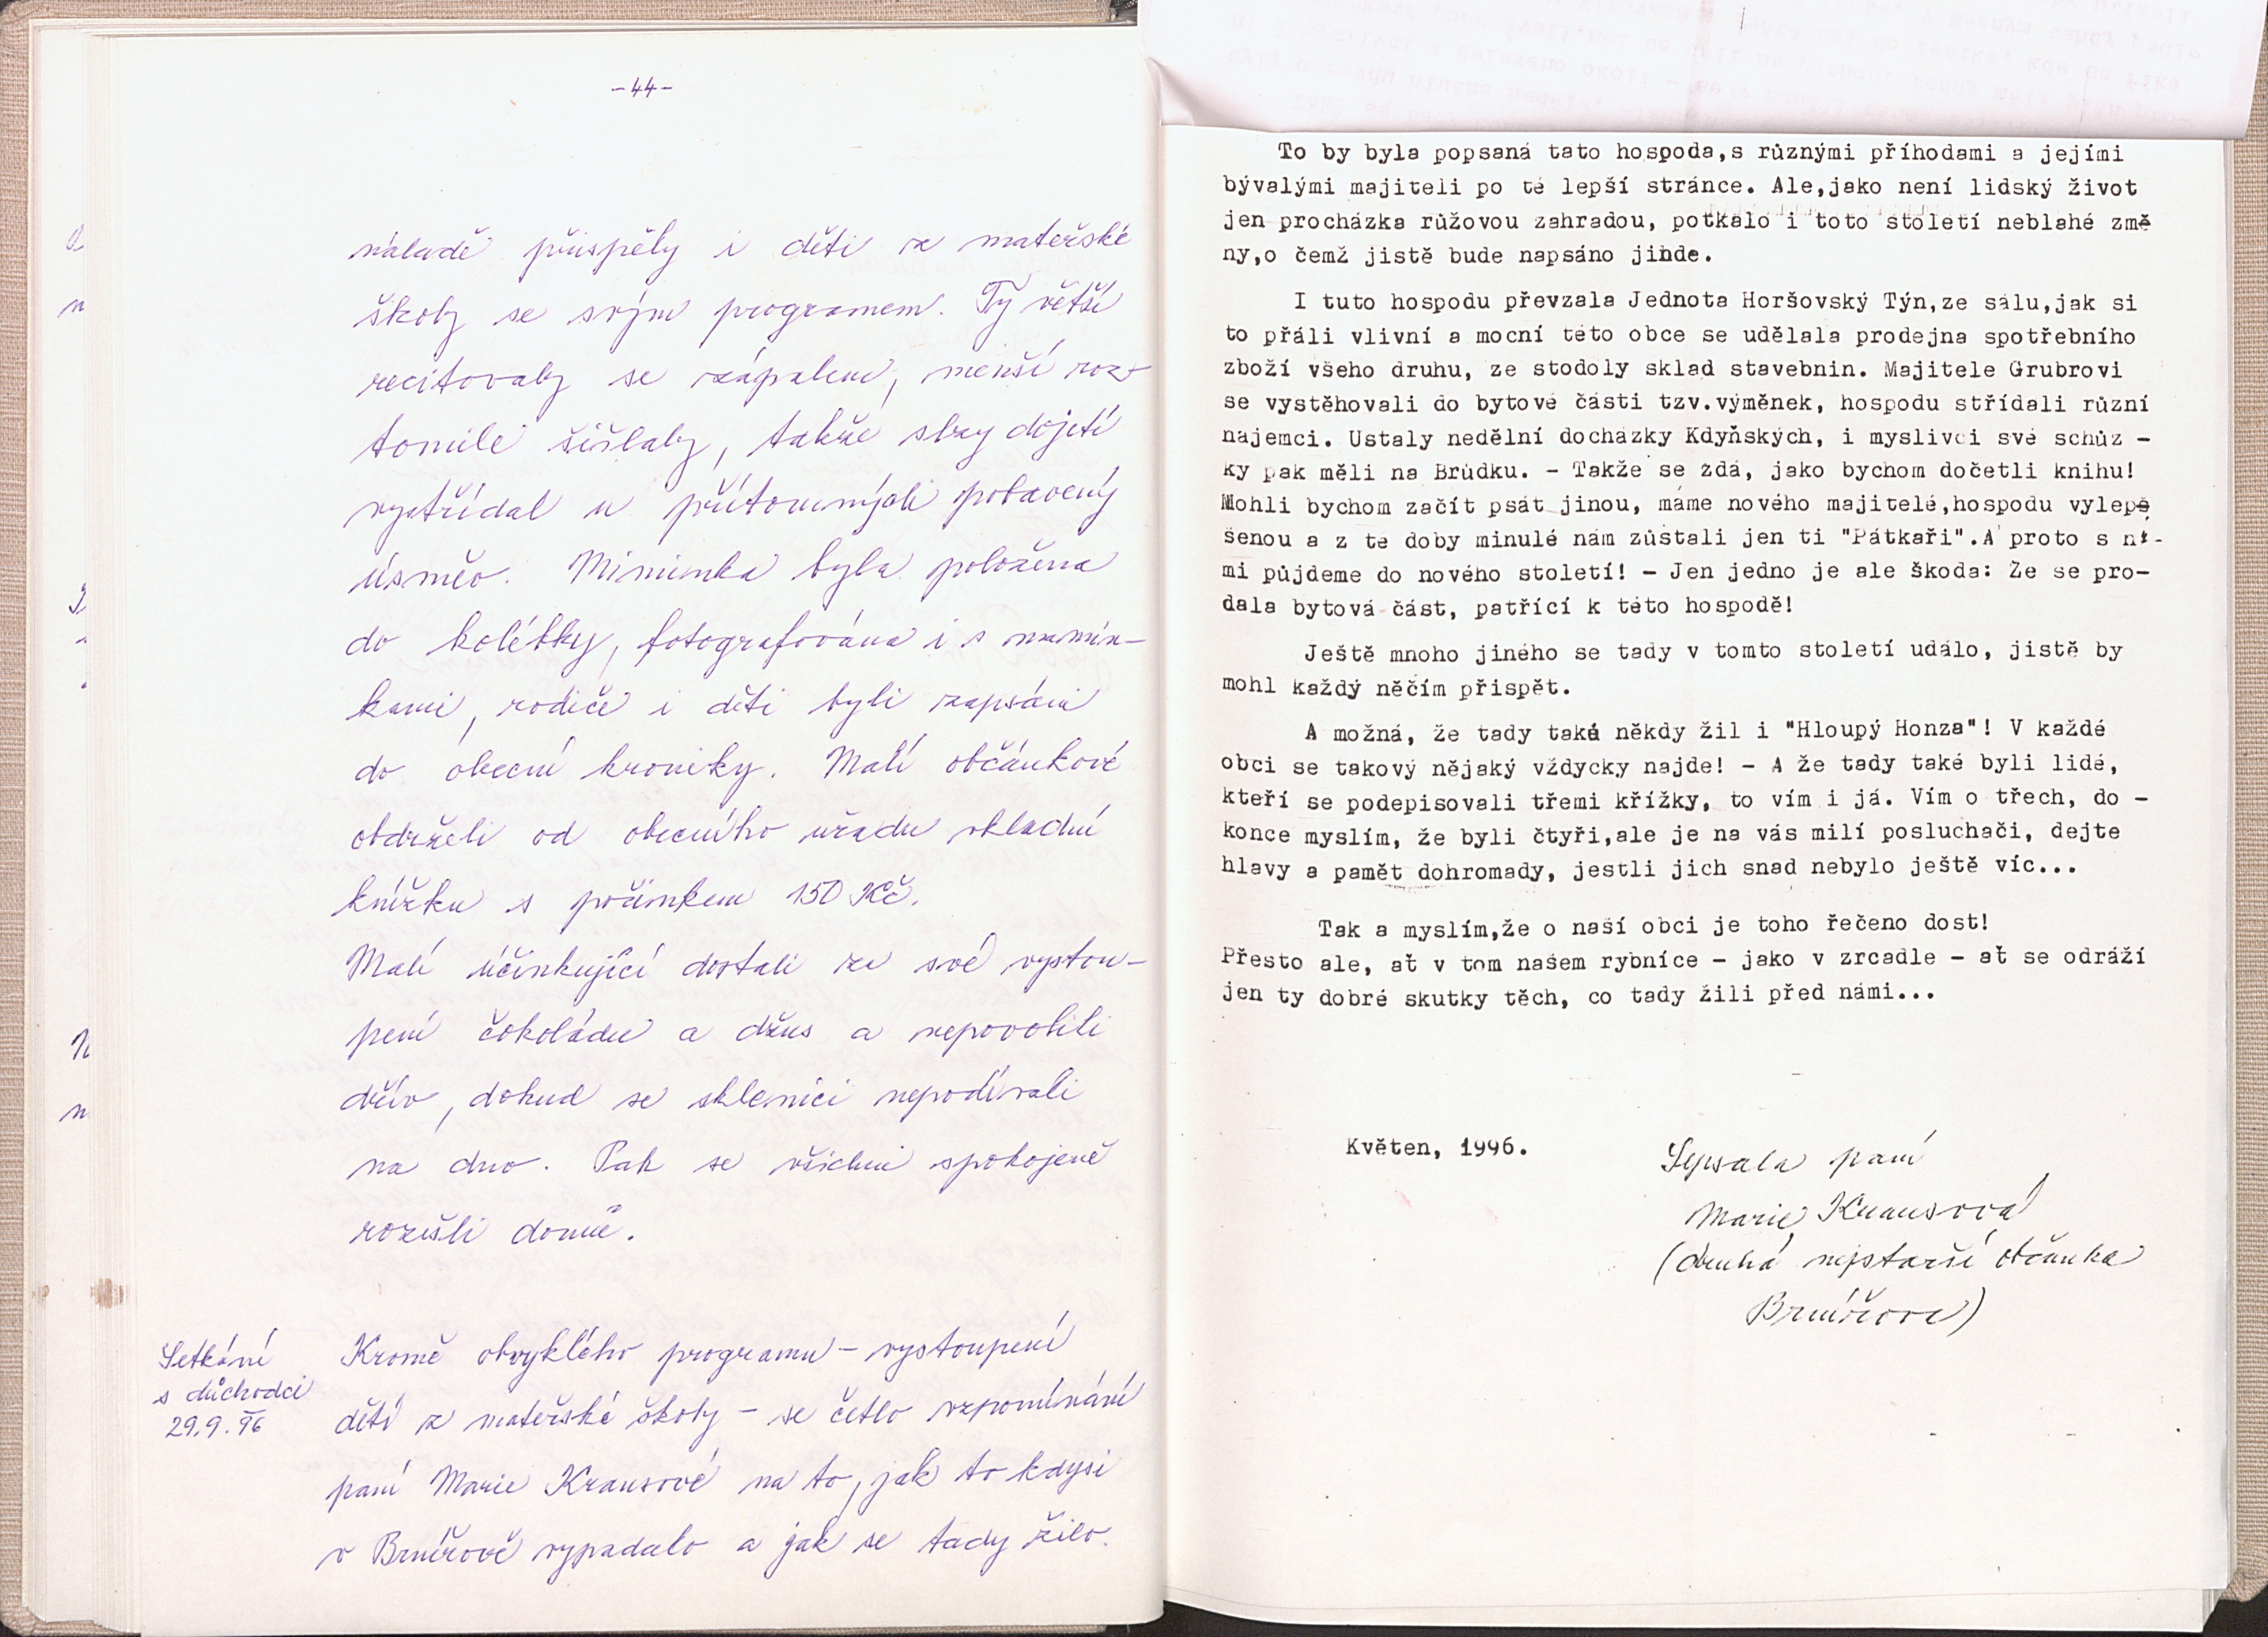 -44-
náladě přispěly i děti z mateřské
školy se svým programem. Ty větší
recitovaly se zápalem, menší roz-
tomile šišlaly, takže slzy dojetí
vystřídal u přítomných pobavený
úsměv. Miminka byla položena
do kolébky, fotografována i s mamin-
kami, rodiče i děti byli zapsáni
do obecní kroniky. Malí občánkové
obdrželi od obecního úřadu vkladní
knížku s počinkem 150 Kč.
Malí účinkující dostali za své vystou-
pení čokoládu a džus a nepovolili
dřív, dokud se sklenici nepodívali
na dno. Pak se všichni spokojeně
rozešli domů.
Setkání
s důchodci
29.9.96
Kromě obvyklého programu - vystoupení
dětí z mateřské školy - se četlo vzpomínání
paní Marie Krausové na to, jak to kdysi
v Brnířově vypadalo a jak se tady žilo.
To by byla popsaná tato hospoda,s různými příhodami a jejími
bývalými majiteli po té lepší stránce. Ale,jako není lidský život
jen procházka růžovou zahradou, potkalo i toto století neblahé změ
ny,o čemž jistě bude napsáno jinde.
I tuto hospodu převzala Jednota Horšovský Týn,ze sálu,jak si
to přáli vlivní a mocní této obce se udělala prodejna spotřebního
zboží všeho druhu, ze stodoly sklad stavebnin. Majitele Grubrovi
se vystěhovali do bytové části tzv.výměnek, hospodu střídali různí
nájemci. Ustaly nedělní docházky Kdyňských, i myslivci své schůz -
ky pak měli na Brůdku. - Takže se zdá, jako bychom dočetli knihu!
Mohli bychom začít psát jinou, máme nového majitelé,hospodu vylepš
šenou a z té doby minulé nám zůstali jen ti "Pátkaři".A proto s ni-
mi půjdeme do nového století! - Jen jedno je ale škoda: Že se pro-
dala bytová část, patřící k této hospodě!
Ještě mnoho jiného se tady v tomto století událo, jistě by
mohl každý něčím přispět.
A možná, že tady také někdy žil i "Hloupý Honza"! V každé
obci se takový nějaký vždycky najde! - A že tady také byli lidé,
kteří se podepisovali třemi křížky, to vím i já. Vím o třech, do -
konce myslím, že byli čtyři,ale je na vás milí posluchači, dejte
hlavy a pamět dohromady, jestli jich snad nebylo ještě víc...
Tak a myslím,že o naší obci je toho řečeno dost!
Přesto ale, ať v tom našem rybníce - jako v zrcadle - ať se odráží
jen ty dobré skutky těch, co tady žili před námi...
Květen, 1996.
Sepsala paní
Marie Krausová
(druhá nejstarší občanka
Brnířova)